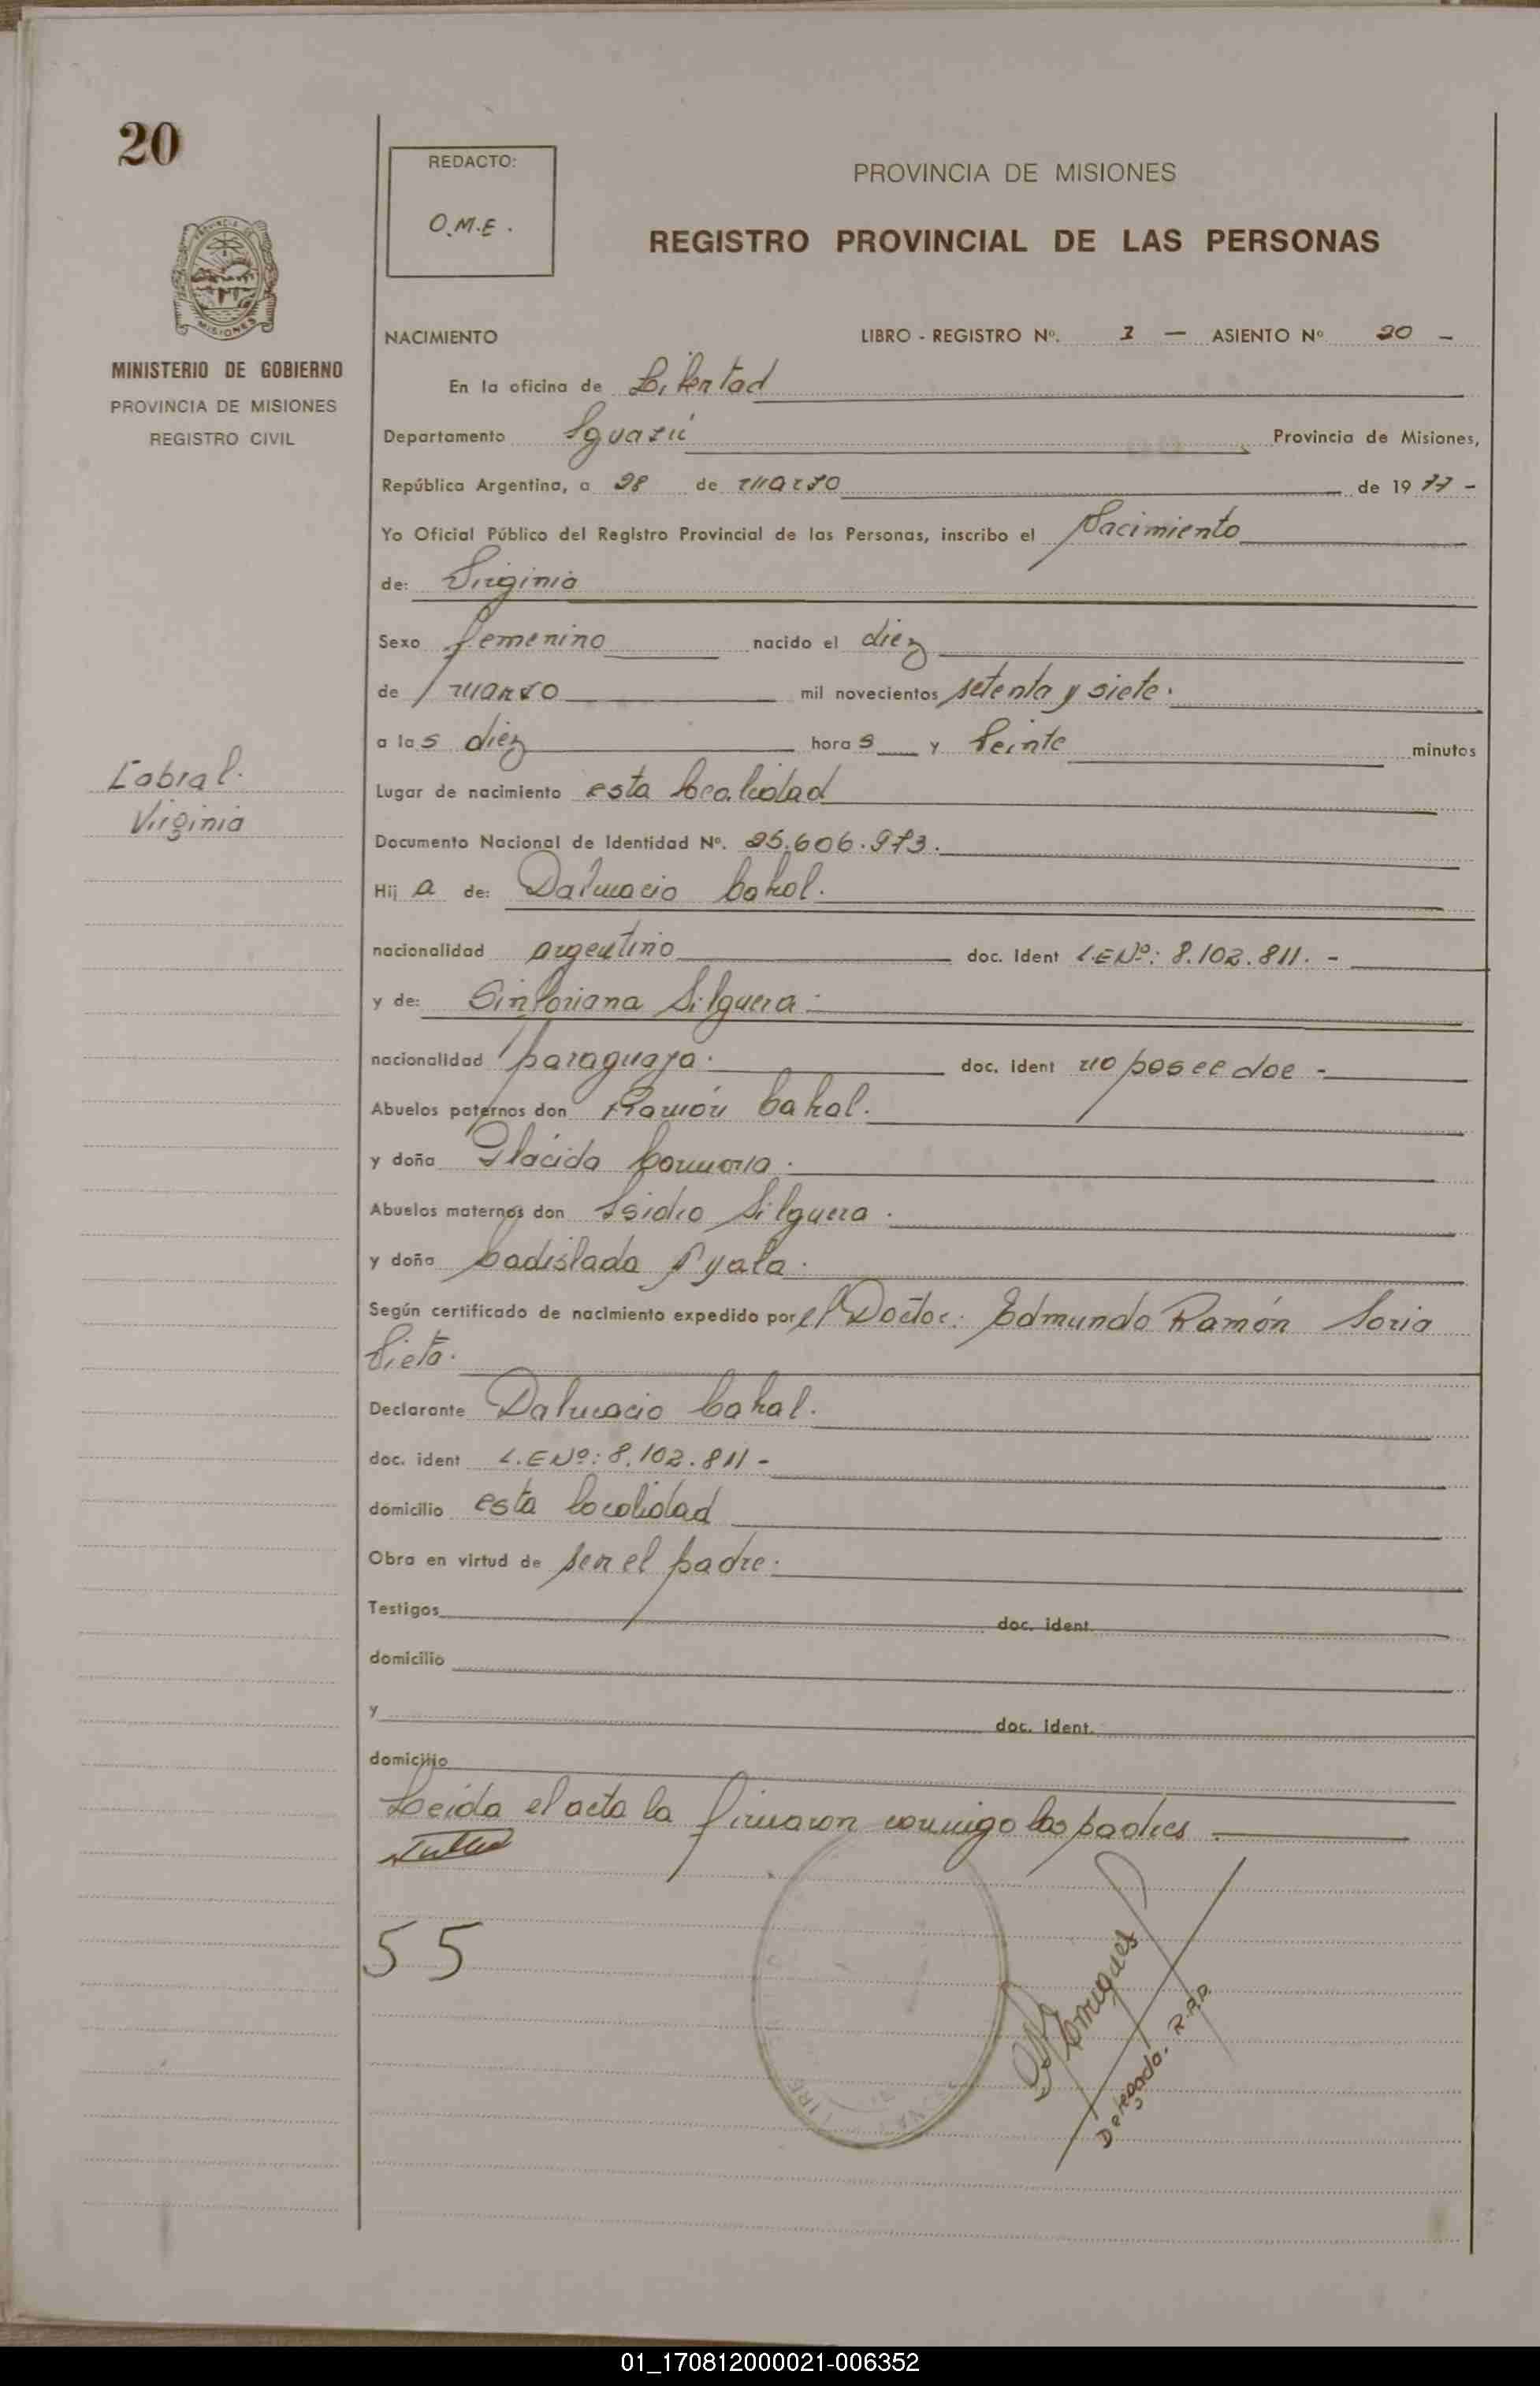 20
REDACTO:
O.M.E.
PROVINCIA DE MISIONES
REGISTRO PROVINCIAL DE LAS PERSONAS
MINISTERIO DE GOBIERNO
PROVINCIA DE MISIONES
REGISTRO CIVIL
Cabral.
Virginia
NACIMIENTO LIBRO - REGISTRO Nº. 1 — ASIENTO Nº 20 -
En la oficina de Libertad
Departamento Iguazú, Provincia de Misiones,
República Argentina, a 28 de marzo de 1977 -
Yo Oficial Público del Registro Provincial de las Personas, inscribo el Nacimiento
de: Virginia
Sexo femenino nacido el diez
de marzo mil novecientos setenta y siete.
a las diez horas y veinte minutos
Lugar de nacimiento esta localidad
Documento Nacional de Identidad Nº. 25.606.973.
Hija de: Dalmacio Cabral.
nacionalidad argentino doc. Ident L.E Nº: 8.102.811. -
y de: Sinforiana Silguera.
nacionalidad paraguaya. doc. Ident no posee doc -
Abuelos paternos don Ramón Cabral.
y doña Plácida
Abuelos maternos don Isidro Silguera.
y doña Ladislada Ayala.
Según certificado de nacimiento expedido por el Doctor: Edmundo Ramón Soria
Vieta.
Declarante Dalmacio Cabral.
doc. ident L.E Nº: 8.102.811 -
domicilio esta localidad
Obra en virtud de ser el padre.
Testigos doc. ident.
domicilio
y doc. ident.
domicilio
Leída el acta la firmaron conmigo los padres.
55
Delegado. R.P.P.
01_170812000021-006352